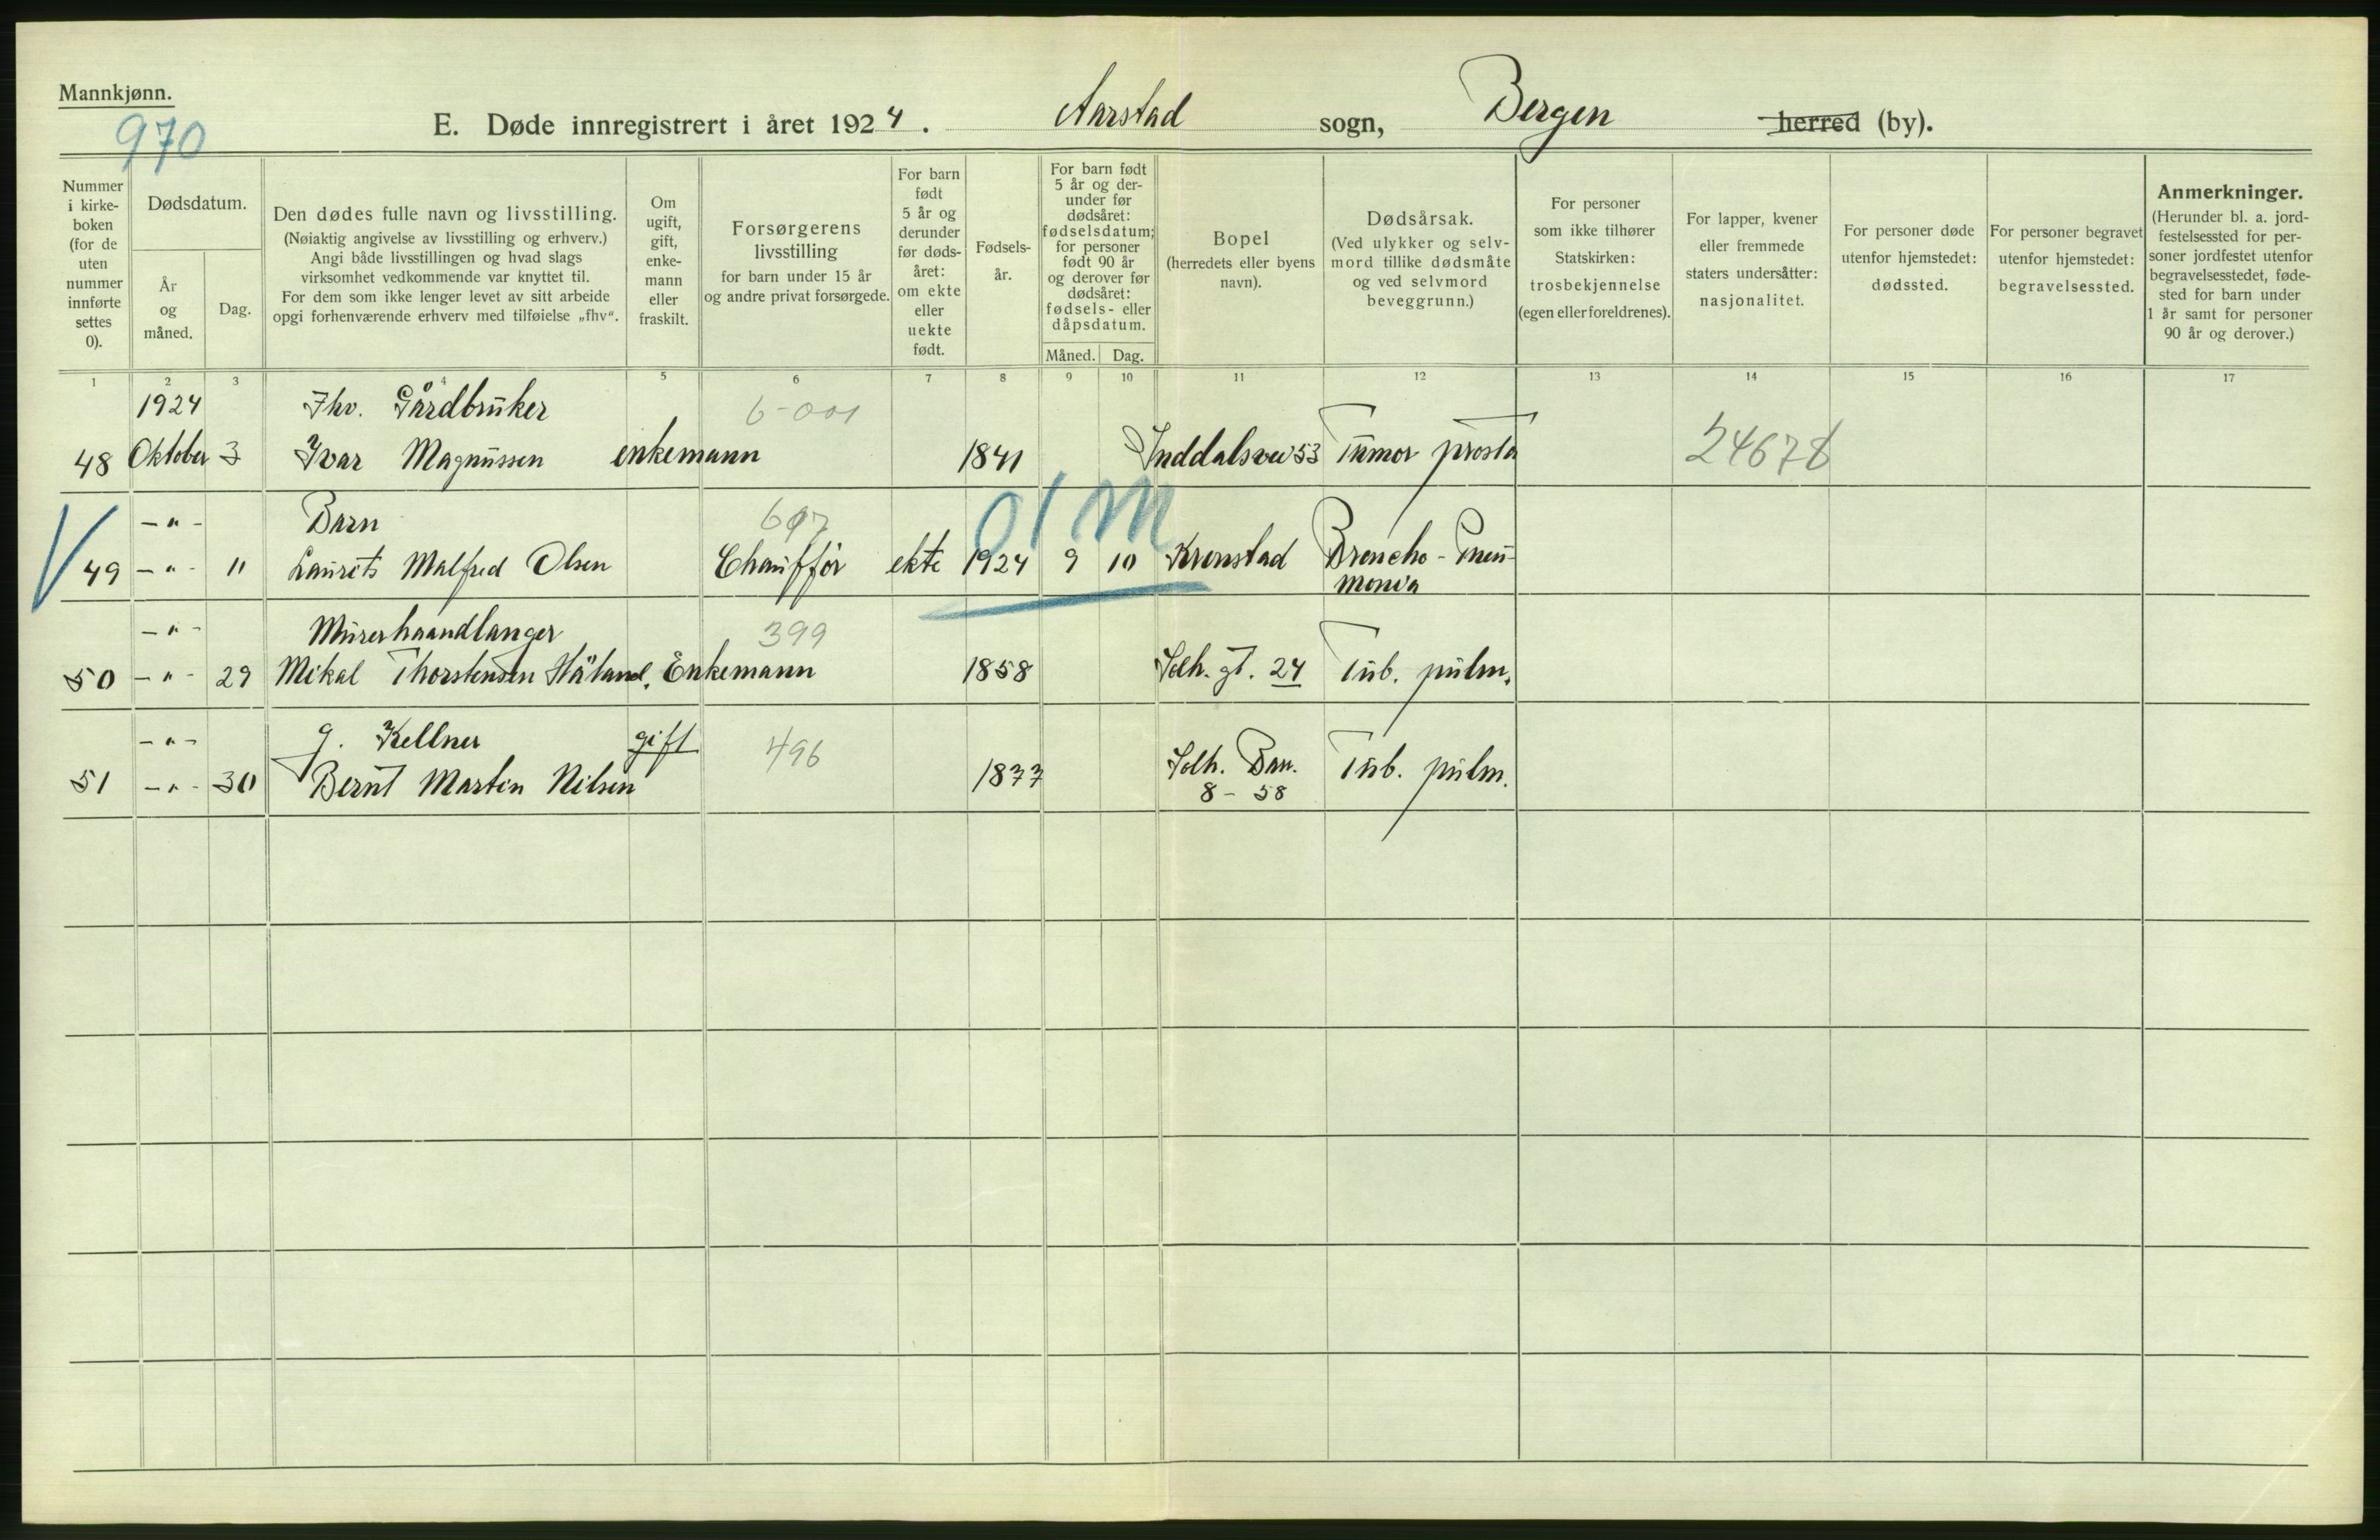 Mannkjønn.
970
E. Døde innregistrert i året 1924. Aarstad sogn, Bergen herred (by).
Nummer
i kirke-
boken
(for de
uten
nummer
innførte
settes
0).
Dødsdatum.
År
og
måned.
Dag.
Den dødes fulle navn og livsstilling.
(Nøiaktig angivelse av livsstilling og erhverv.)
Angi både livsstillingen og hvad slags
virksomhet vedkommende var knyttet til.
For dem som ikke lenger levet av sitt arbeide
opgi forhenværende erhverv med tilføielse „fhv“.
Om
ugift,
gift,
enke-
mann
eller
fraskilt.
Forsørgerens
livsstilling
for barn under 15 år
og andre privat forsørgede.
For barn
født
5 år og
derunder
før døds-
året:
om ekte
eller
uekte
født.
Fødsels-
år.
For barn født
5 år og der-
under før
dødsåret:
fødselsdatum;
for personer
født 90 år
og derover før
dødsåret:
fødsels- eller
dåpsdatum.
Måned. Dag.
Bopel
(herredets eller byens
navn).
Dødsårsak.
(Ved ulykker og selv-
mord tillike dødsmåte
og ved selvmord
beveggrunn.)
For personer
som ikke tilhører
Statskirken:
trosbekjennelse
(egen eller foreldrenes).
For lapper, kvener
eller fremmede
staters undersåtter:
nasjonalitet.
For personer døde
utenfor hjemstedet:
dødssted.
For personer begravet
utenfor hjemstedet:
begravelsessted.
Anmerkninger.
(Herunder bl. a. jord-
festelsessted for per-
soner jordfestet utenfor
begravelsesstedet, føde-
sted for barn under
1 år samt for personer
90 år og derover.)
1 2 3 4 5 6 7 8 9 10 11 12 13 14 15 16 17
1924 Fhv. Gårdbruker 6-001
48 Oktober 3 Ivar Magnussen enkemann 1841 Inddalsvei 53 Tumor prosta 24678
-"- Barn 607 01 M
49 -"- 11 Laurits Malfred Olsen Chauffør ekte 1924 9 10 Kronstad Broncho-Pneu-
monia
-"- Murerhaandlanger 399
50 -"- 29 Mikal Thorstensen Håland. Enkemann 1858 Solh. gt. 24 Tub. pulm.
-"- g. Kellner gift 496
51 -"- 30 Bernt Martin Nilsen 1877 Solh. Bar. Tub. pulm.
8 - 58